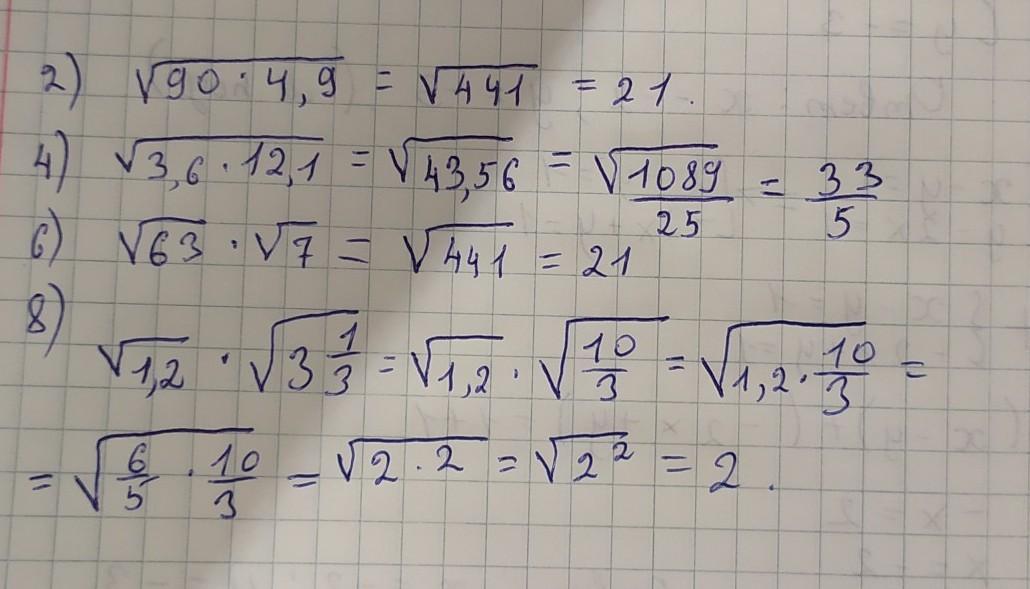 2) √90·4,9 = √441 = 21.
4) √3,6·12,1 = √43,56 = √1089/25 = 33/5
6) √63 · √7 = √441 = 21
8)
√1,2 · √3 1/3 = √1,2 · √10/3 = √1,2·10/3 =
= √6/5 · 10/3 = √2·2 = √2² = 2.